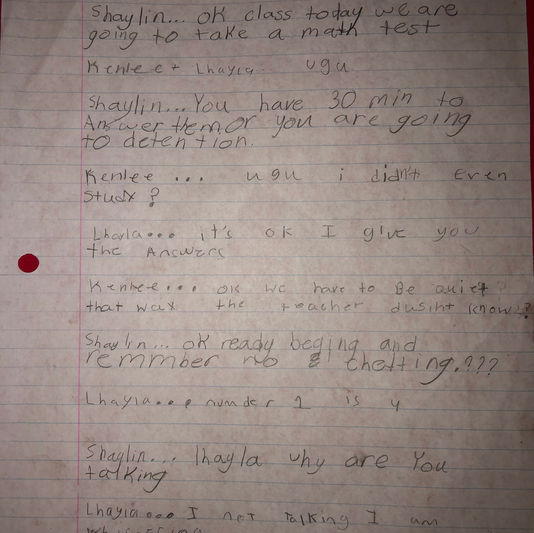 Shaylin... ok class today we are
going to take a math test
Kenlee + Lhayla. ugu
Shaylin... You have 30 min to
Answer them or you are going
to detention.
Kenlee ... ugu i didn't Even
Study?
Lhayla... it's ok I give you
the Answers
Kenlee... ok we have to Be quiet?
that way the teacher dusint know??
Shaylin... ok ready beging and
remmber no chetting.???
Lhayla... number 1 is 4
Shaylin... lhayla why are You
talking
Lhayla... I not talking I am